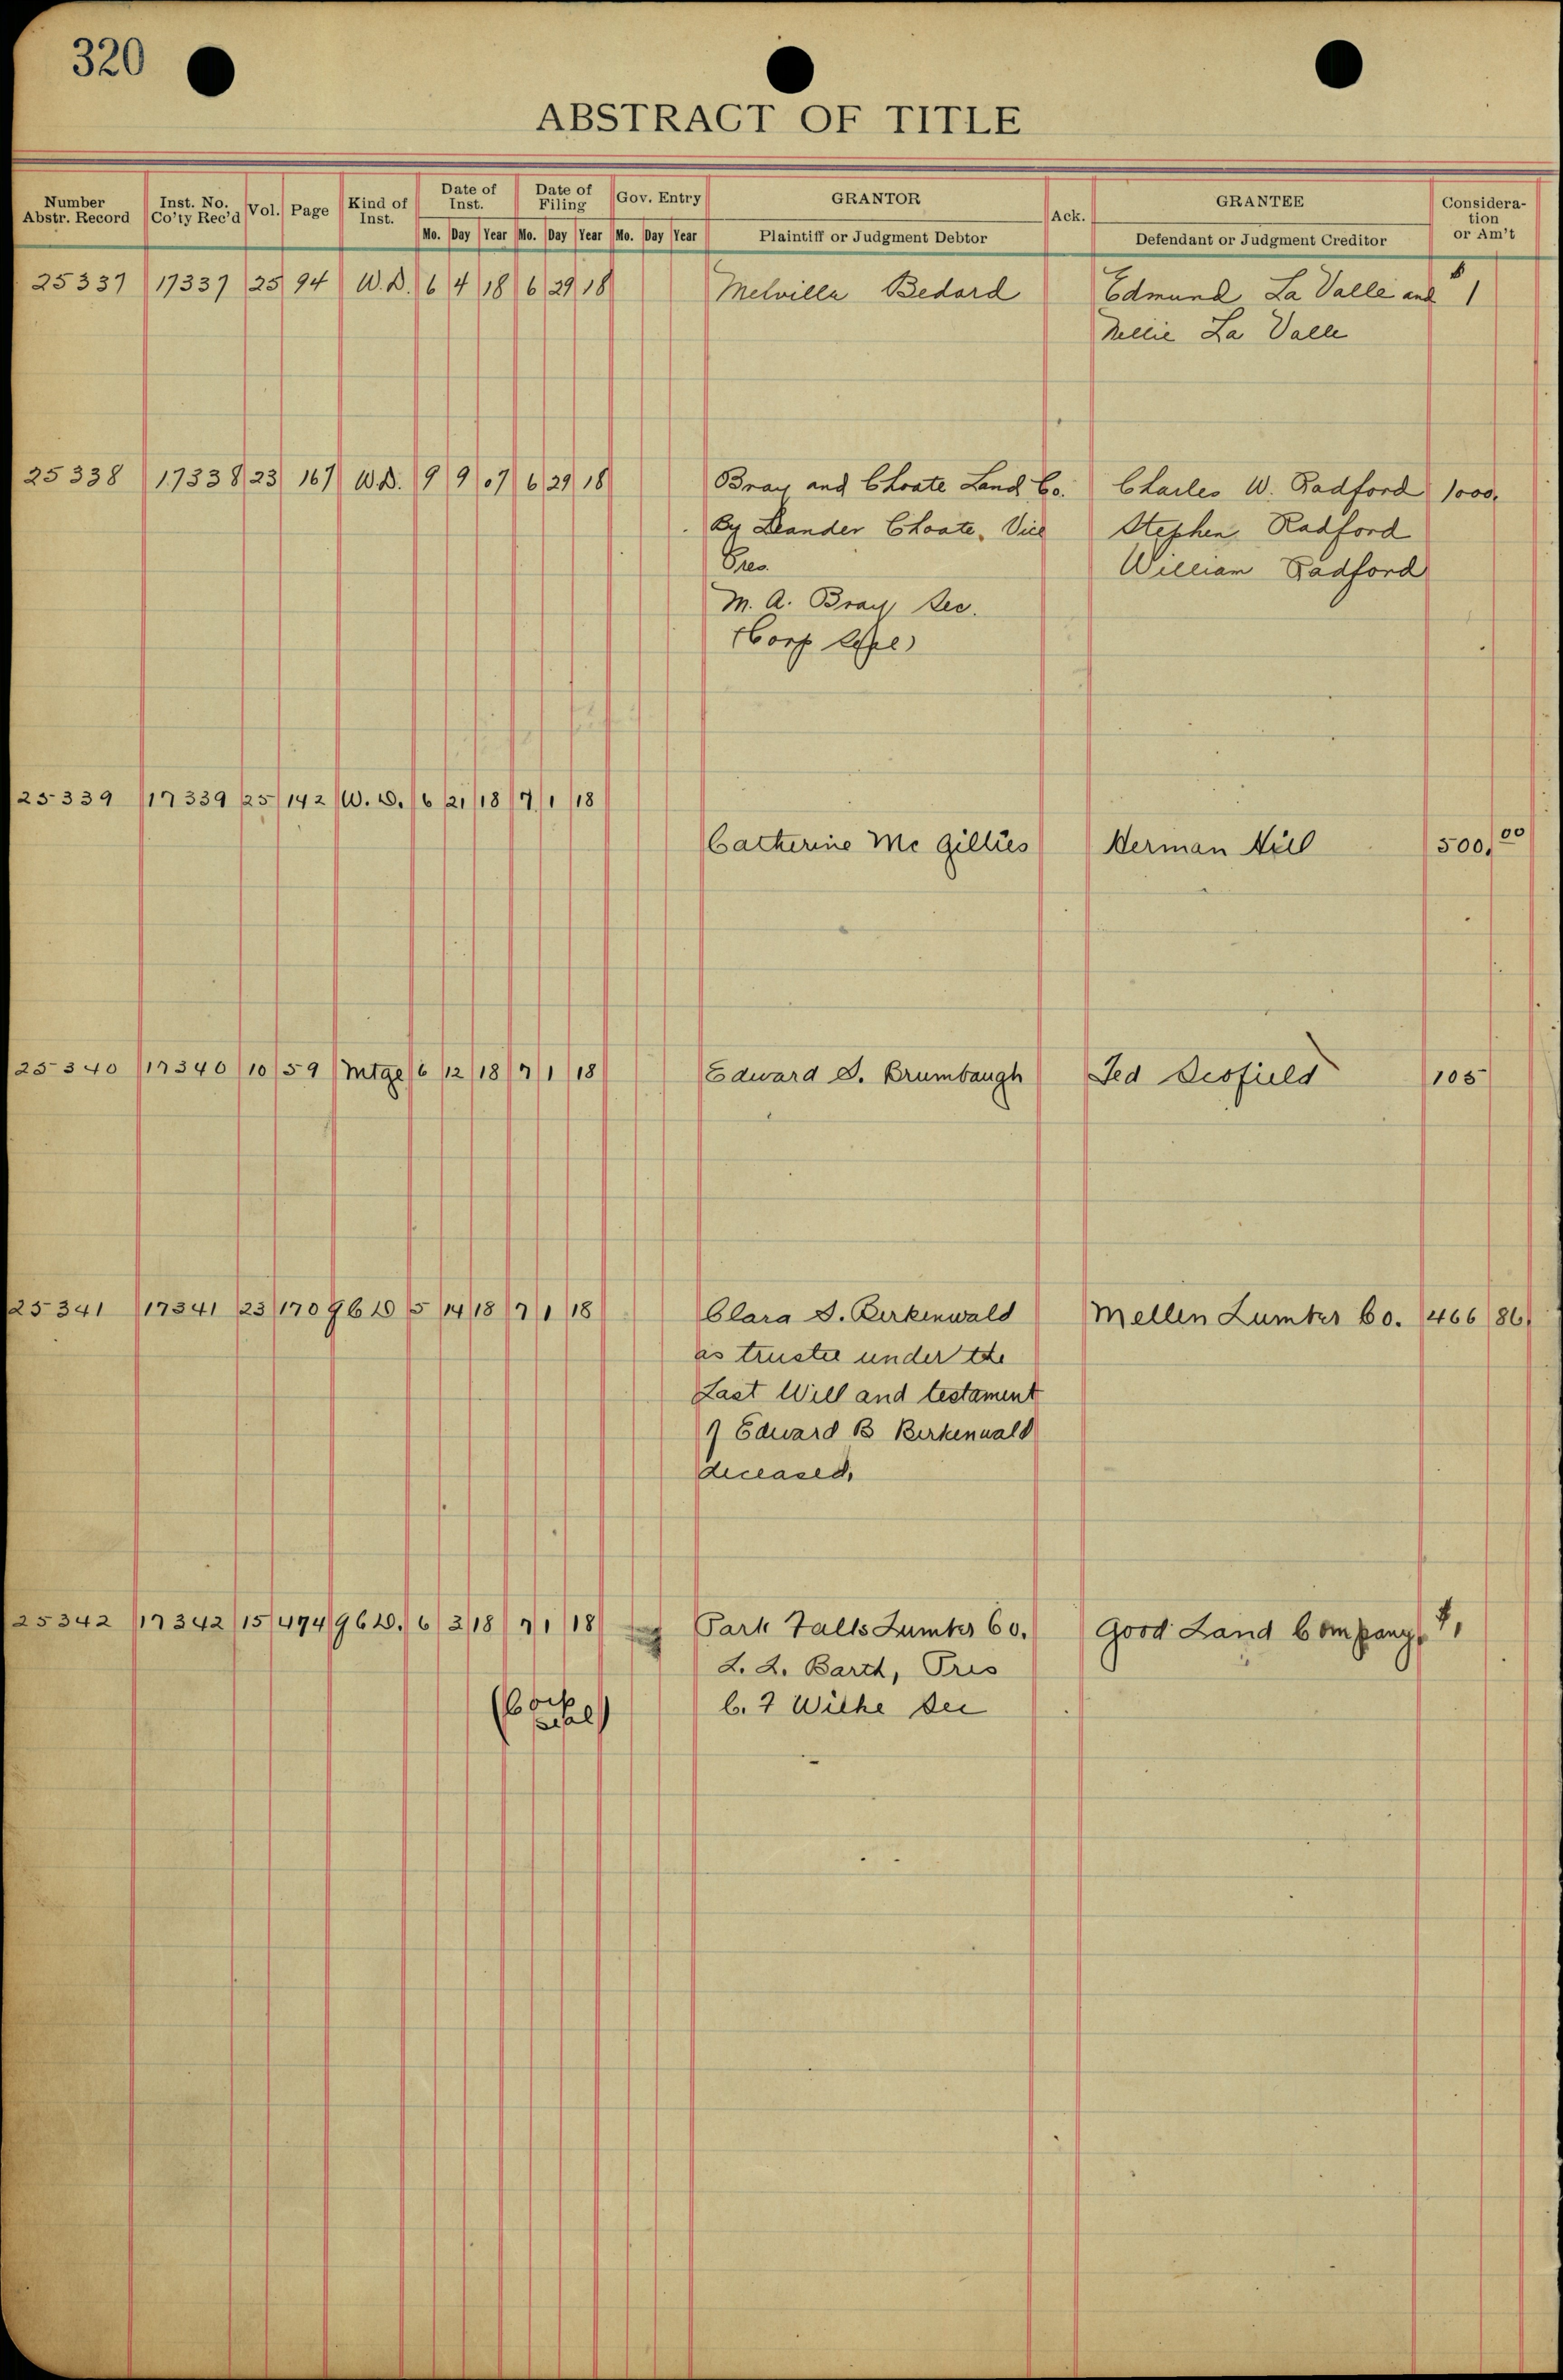 320
ABSTRACT OF TITLE
Number Abstr. Record Inst. No. Co'ty Rec'd Vol. Page Kind of Inst. Date of Inst. Date of Filing Gov. Entry GRANTOR Ack. GRANTEE Considera- tion or Am't
Mo. Day Year Mo. Day Year Mo. Day Year Plaintiff or Judgment Debtor Defendant or Judgment Creditor
25337 17337 25 94 W.D. 6 4 18 6 29 18 Melvilla Bedard Edmund La Valle and $ 1
Nellie La Valle
25338 17338 23 167 W.D. 9 9 07 6 29 18 Bray and Choate Land Co. Charles W. Radford 1000.
By Leander Choate, Vice Stephen Radford
Pres. William Radford
M. A. Bray Sec.
(Corp Seal)
25339 17339 25 142 W.D. 6 21 18 7 1 18
Catherine Mc Gillies Herman Hill 500.00
25340 17340 10 59 Mtge 6 12 18 7 1 18 Edward D. Brumbaugh Ted Scofield 105
25341 17341 23 170 QCD 5 14 18 7 1 18 Clara S. Birkenwald Mellen Lumber Co. 466 86
as trustee under the
Last Will and testament
of Edward B Birkenwald
deceased,
25342 17342 15 474 QCD. 6 3 18 7 1 18 Park Falls Lumber Co. Good Land Company, $1
L. L. Barth, Pres
(Corp seal) C. F Wiehe Sec